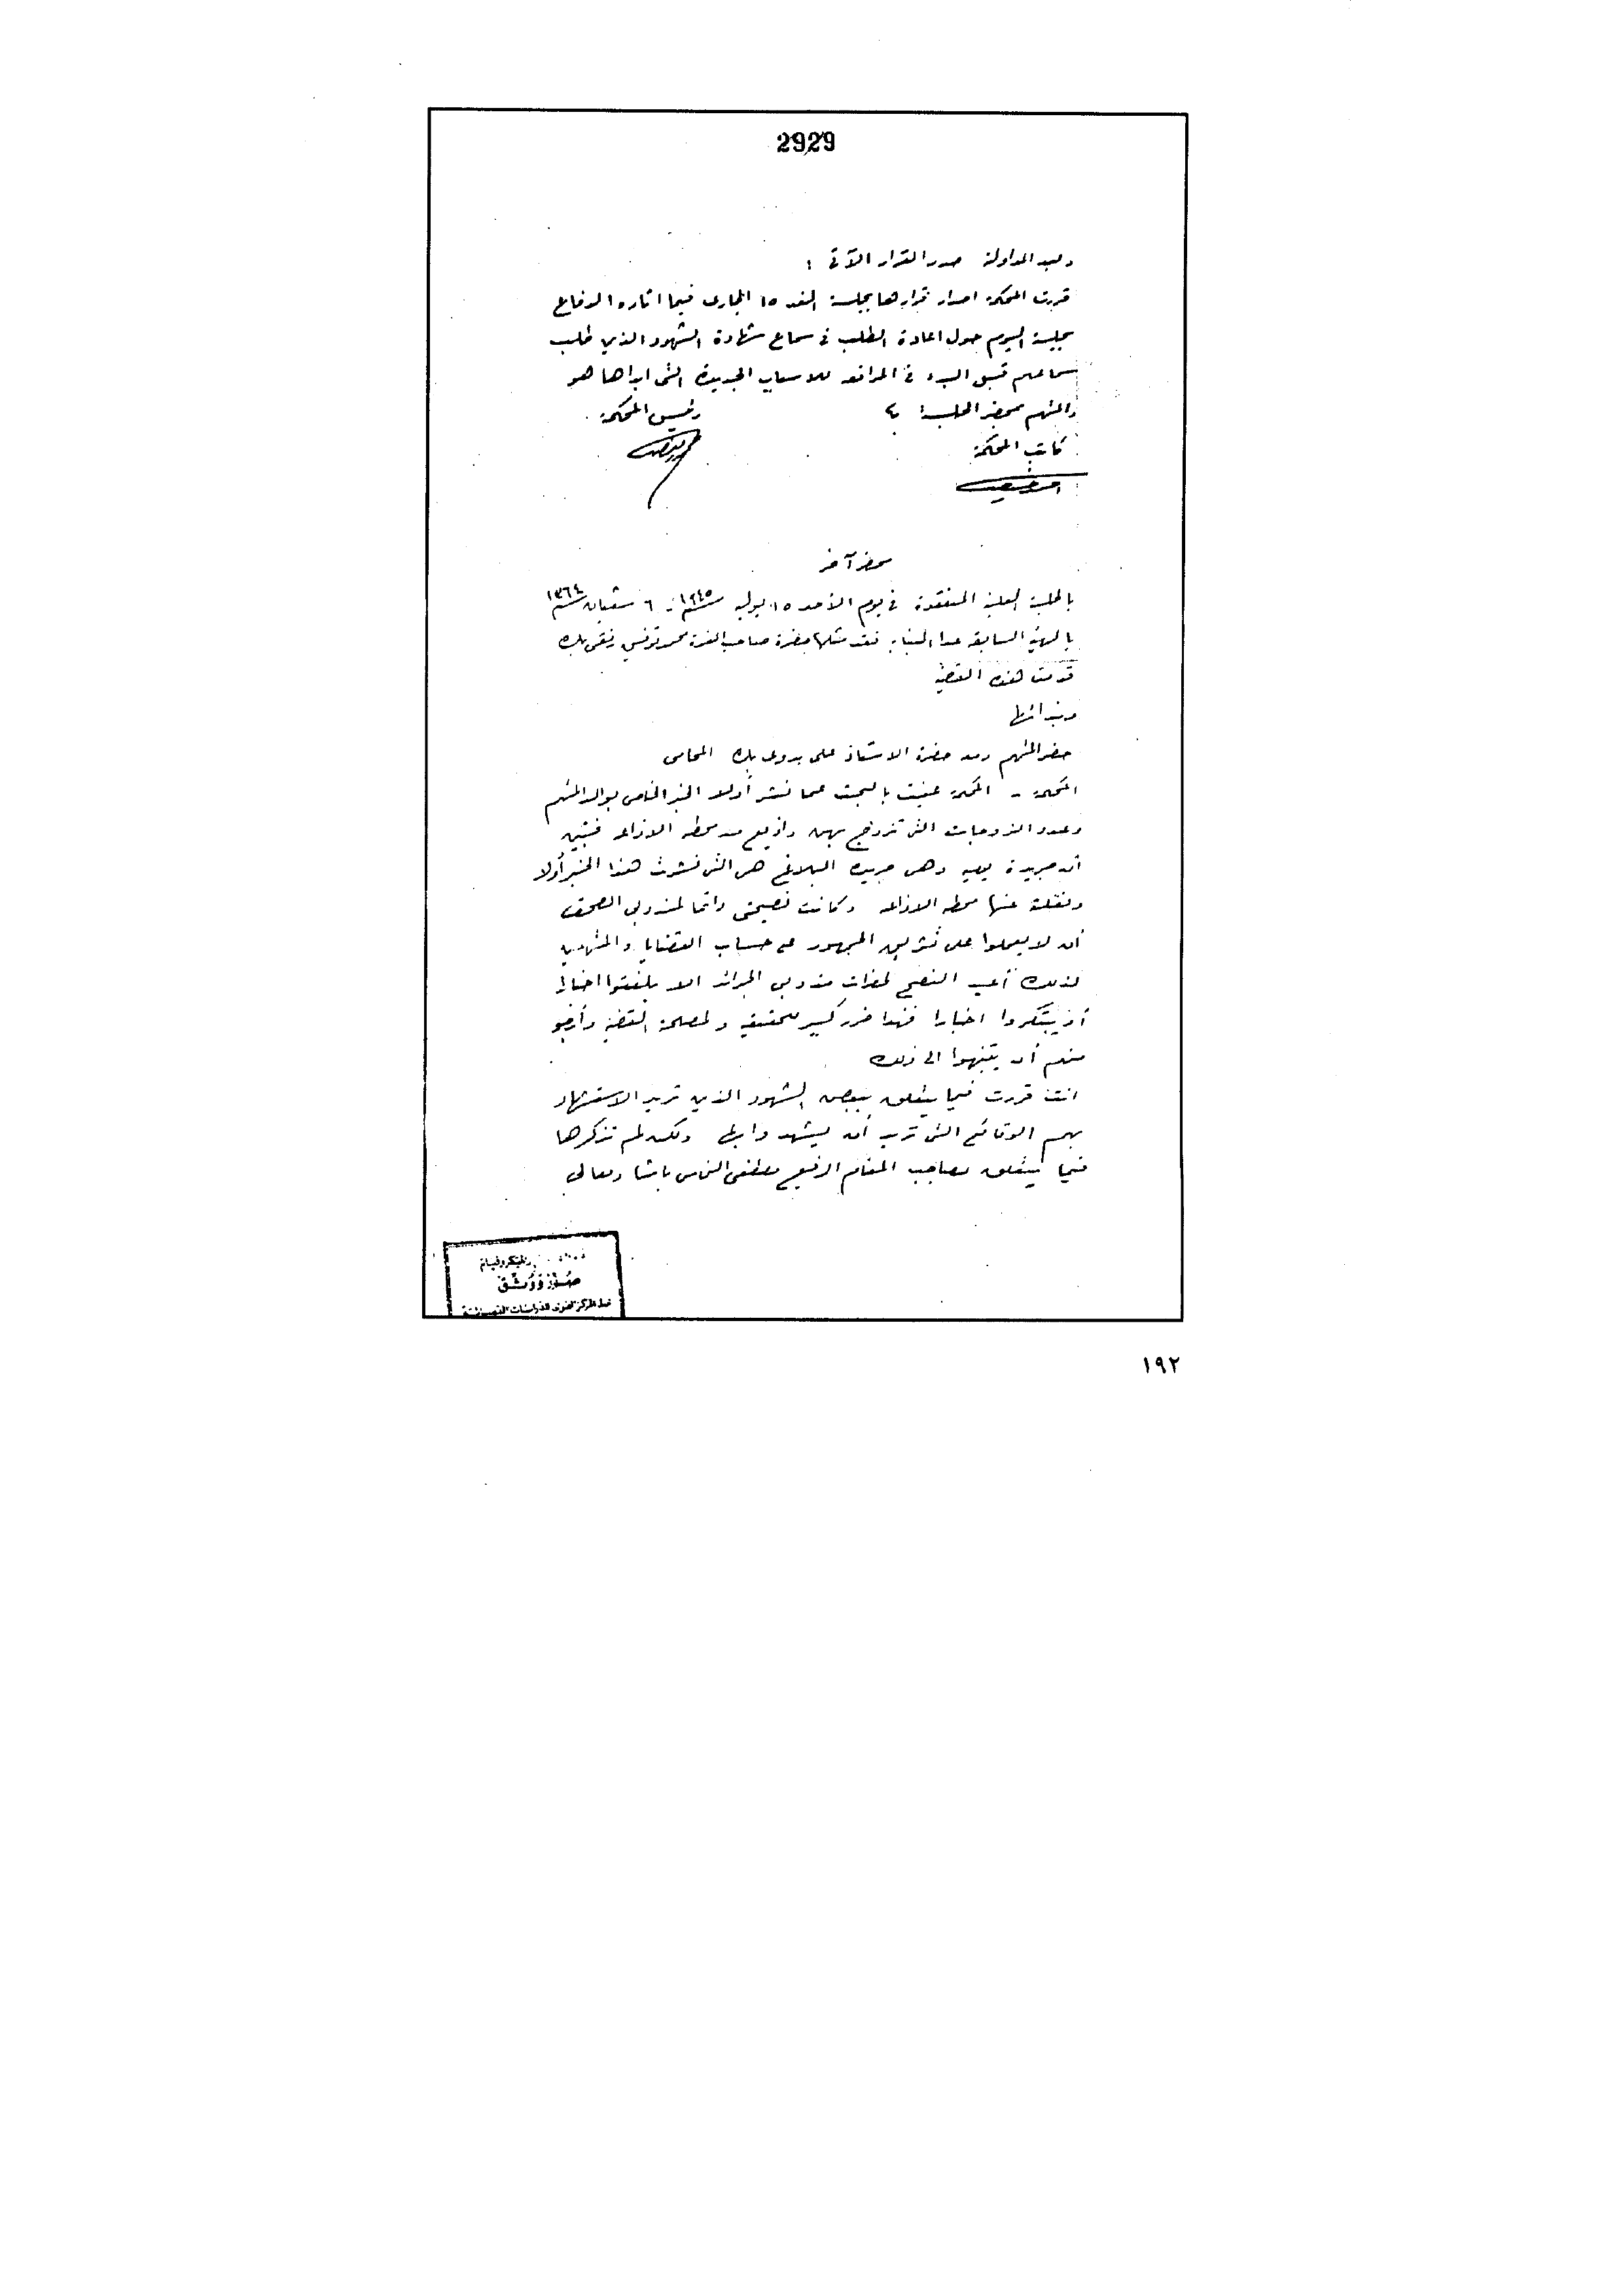 2929
وبعد المداولة صدر القرار الآتى :
قررت المحكمة اصدار قرارها بجلسة الغد ١٥ الجارى فيما اثاره الدفاع
بجلسة اليوم حول اعادة الطلب فى سماع شهادة الشهود الذين طلب
سماعهم قبل البدء فى المرافعة للاسباب الجديدة التى ابداها هو
والمتهم بمحضر الجلسة
رئيس المحكمة
كاتب المحكمة
محضر آخر
بالجلسة العلنية المنعقدة فى يوم الأحد ١٥ يوليه سنة ١٩٤٥ - ٦ شعبان سنة ١٣٦٤
بالهيئة السابقة عدا النيابة فقد مثلها حضرة صاحب العزة محمد توفيق رفقى بك
قدمت هذه القضية
وبندائها
حضر المتهم ومعه حضرة الاستاذ على بدوى بك المحامى
المحكمة - المحكمة عنيت بالبحث عما نشر أولا الخبر الخاص بوالد المتهم
وعدد الزوجات التى تزوج بهن واذيع من محطة الاذاعة فتبين
أن جريدة يومية وهى جريدة البلاغ هى التى نشرت هذا الخبر أولا
ونقلته عنها محطة الاذاعة وكانت نصيحتى دائما لمندوبى الصحف
أن لا يعملوا على تشويق الجمهور على حساب القضايا والمتهمين
لذلك أعيد النصح لحضرات مندوبى الجرائد الا يلفقوا اخبارا
أو يبتكروا اخبارا فهذا ضرر كبير للحقيقة ولمصلحة القضية وأرجو
منهم أن يتنبهوا الى ذلك
انت قررت فيما يتعلق ببعض الشهود الذين تريد الاستشهاد
بهم الوقائع التى تريد أن يشهدوا بها ولكن لم تذكرها
فيما يتعلق بصاحب المقام الرفيع مصطفى النحاس باشا ومعالى
والميكروفيلم
١٩٢